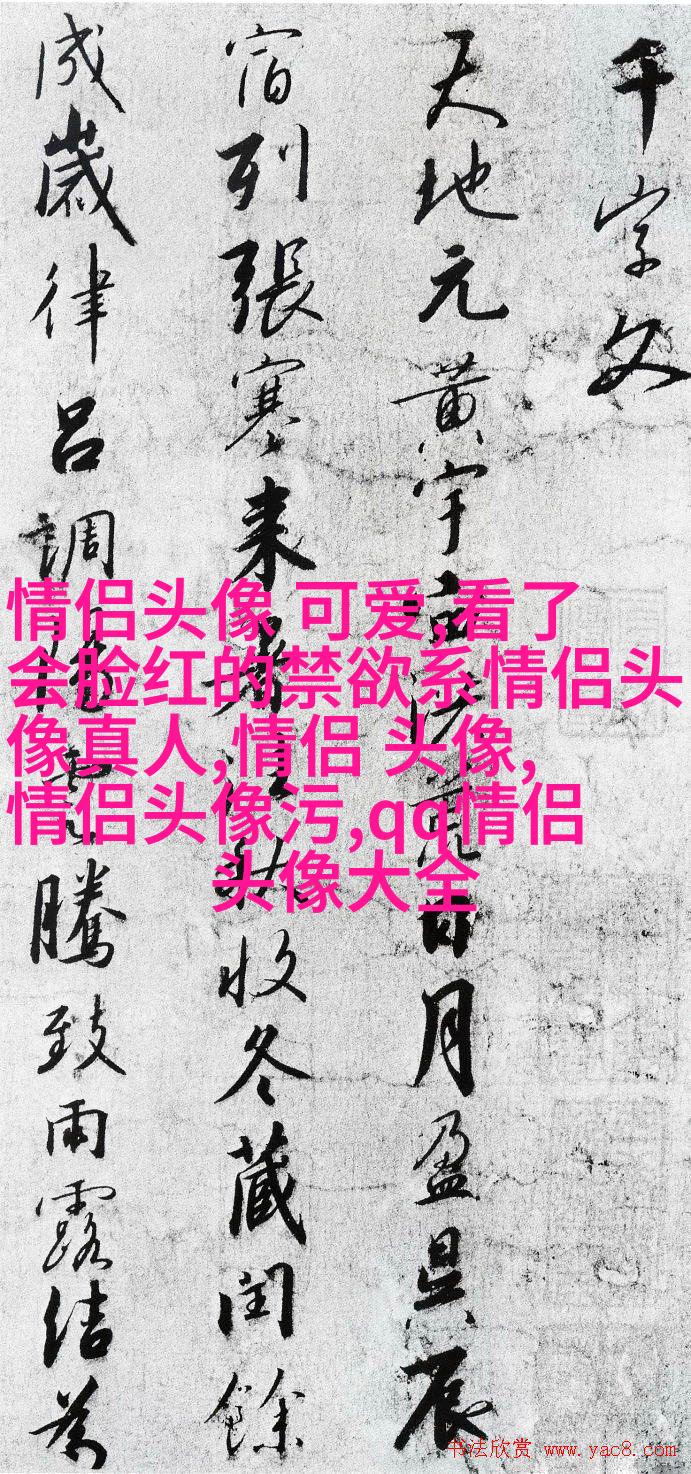 千字文
天地元黃宇宙洪荒日月盈昃辰
宿列張寒來暑往秋收冬藏閏餘
成歲律呂調陽雲騰致雨露結為
情侣头像 可爱,看了
会脸红的禁欲系情侣头
像真人,情侣 头像,
情侣头像污,qq情侣
头像大全
书法欣赏 www.yac8.com